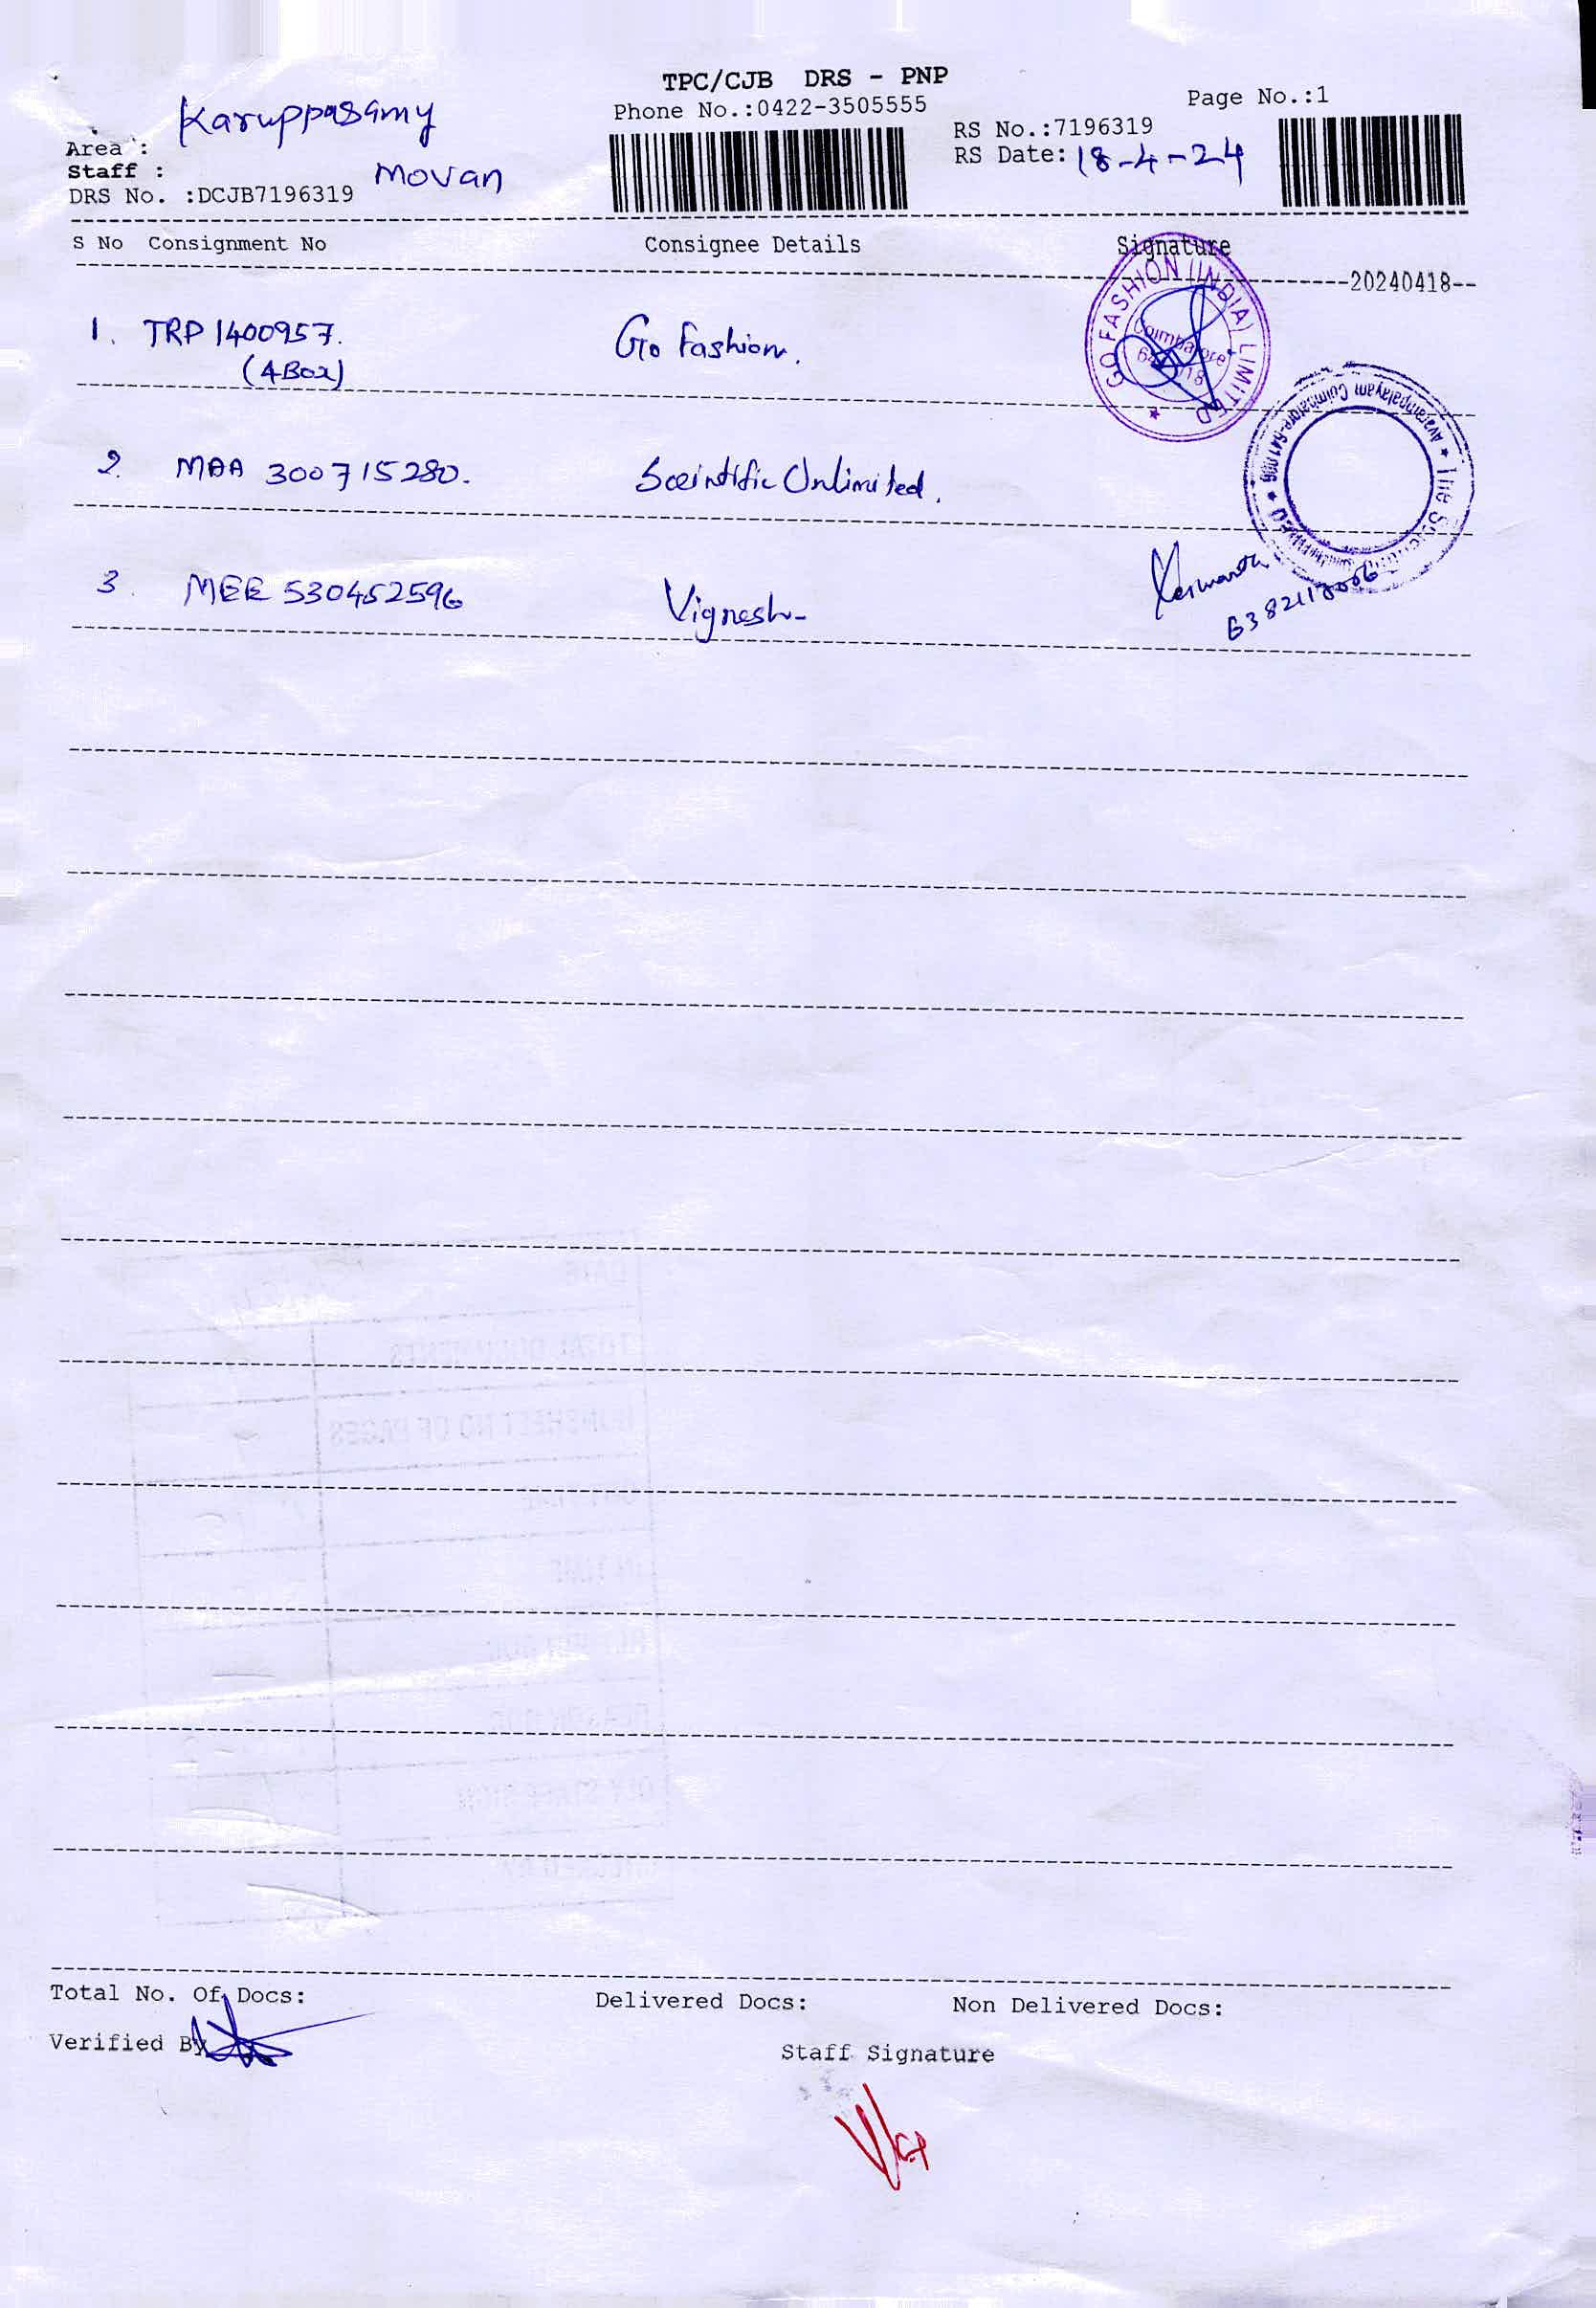 TPC/CJB DRS - PNP
Phone No.:0422-3505555
Page No.:1
Karuppasamy
Area :
Staff :
Movan
DRS No. :DCJB7196319
RS No.:7196319
RS Date: 18-4-24
S No Consignment No Consignee Details Signature
20240418
GO FASHION (INDIA) LIMITED
Coimbatore
1. TRP 1400957. Go Fashion.
(4Box)
Avarampalayam Coimbatore-641 006
2. MAA 300715280. Sceintific Unlimited.
3. MEE 530452596 Vignesh
Total No. Of Docs: Delivered Docs: Non Delivered Docs:
Verified By
Staff Signature